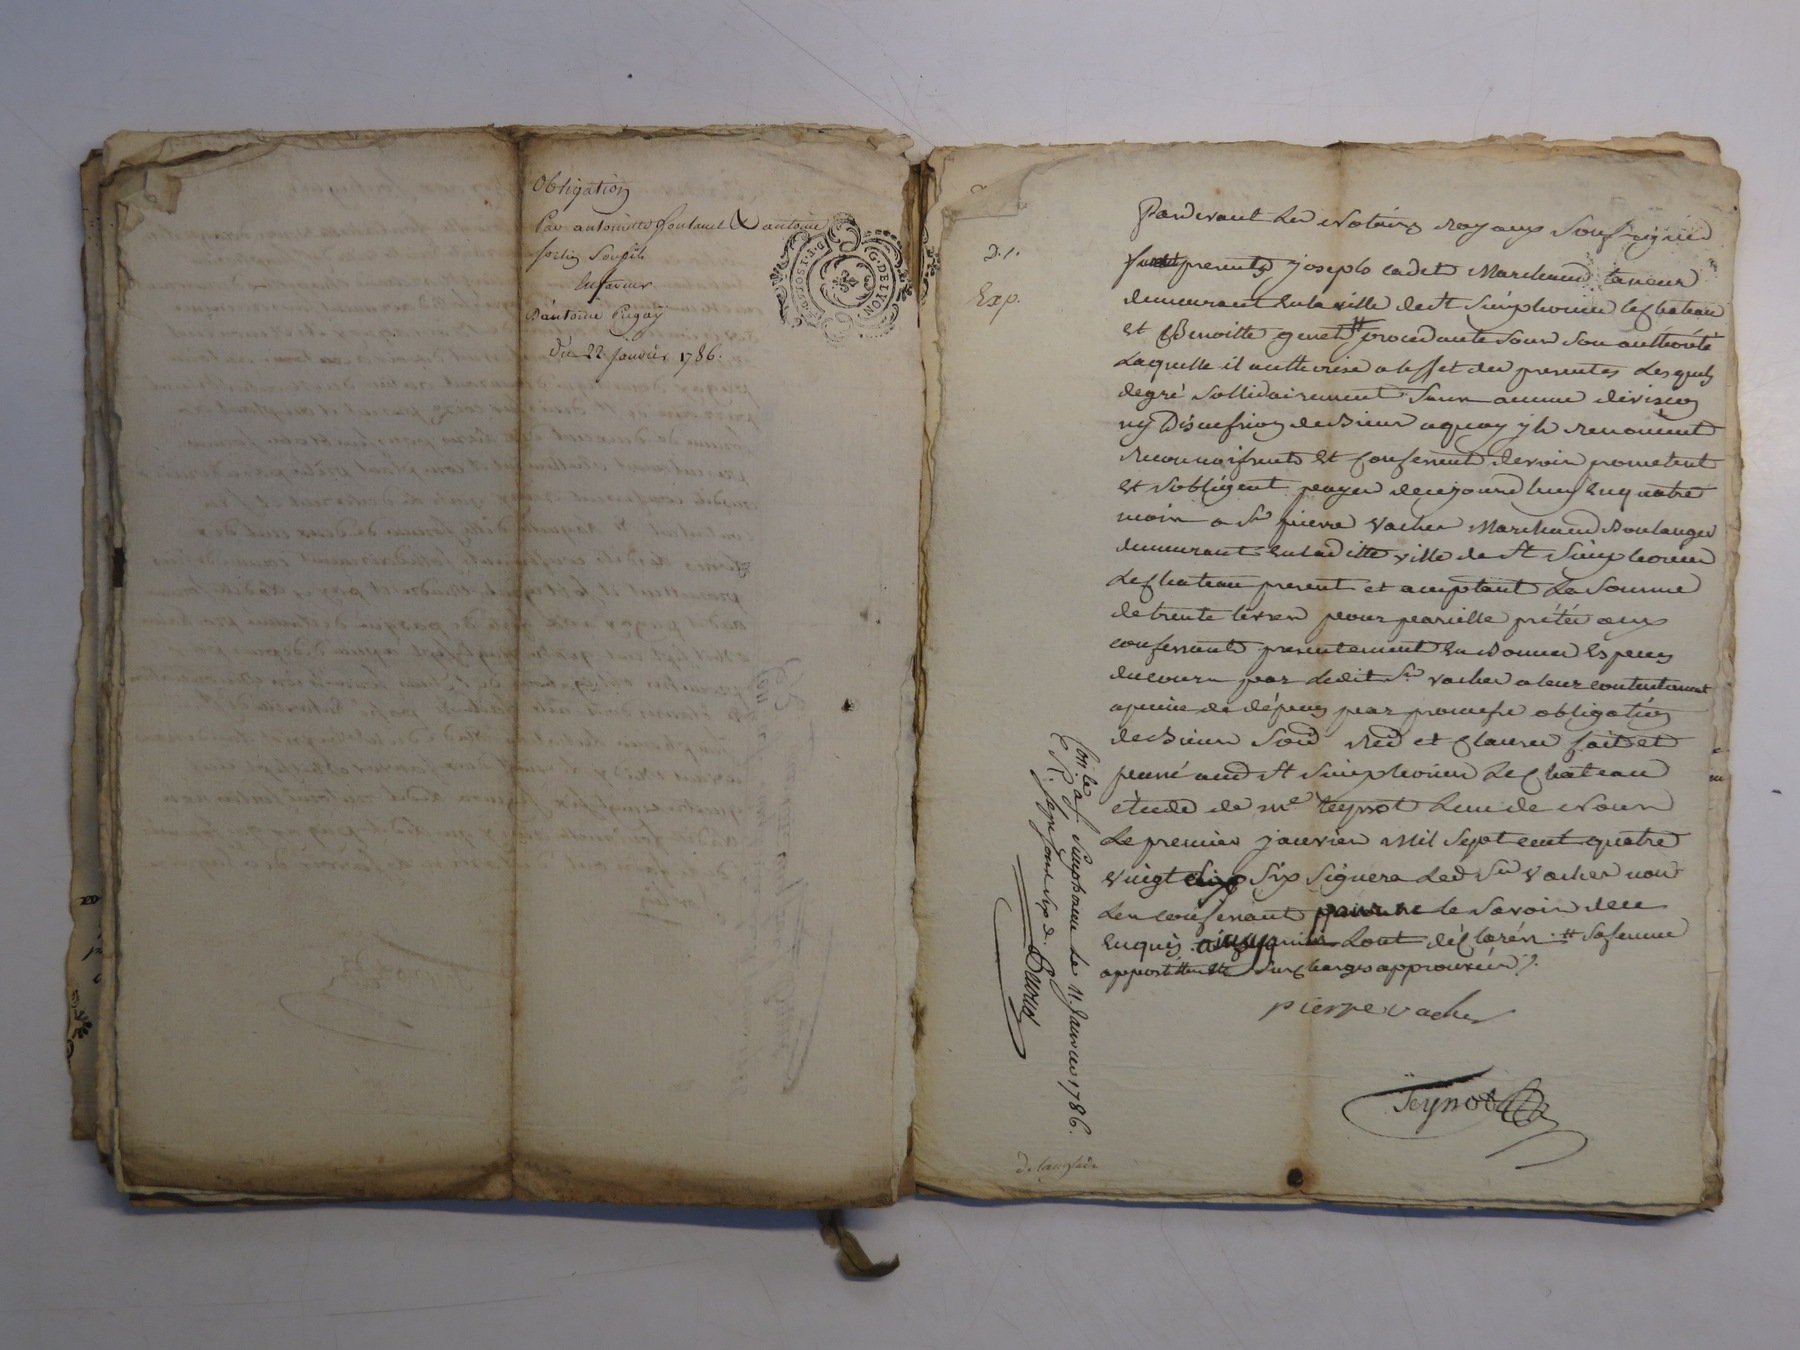 Obligation
Par antoinette fontanel & antoine
fortin son fils
En faveur
D'antoine Pugay
Du 22 janvier 1786.
G. DE LYON
D. 1.
Exp.
Pardevant Les Notaires royaux Soussignés
presents joseph cadet Marchand taneur
demeurant En la ville de St Simphorien le chateau
et Benoitte genet # procedante Sous Son authorité
Laquelle il authorise a leffet des presentes Lesquels
de gré Sollidairement Sans aucune division
ny Discussion de Biens a quoy ils renoncent
reconnoissent Et Confessent devoir prometent
et S'obligent payer de ce jourd'huy En quatre
mois a Sr pierre vacher Marchand Boulanger
demeurant En lad itte ville de St Simphorien
Le chateau present et aceptant La Somme
de trente livres pour pareille prétée aux
confessants presentement En Bonnes Especes
du cours par Ledit Sr vacher a leur contentement
a peine de dépens par promesse obligation
de Biens Soud Red et Clauses fait et
passé aud St Simphorien Le Chateau
étude de me teynot L'un de Nous
Le premier janvier Mil Sept cent quatre
vingt Six Signera Led Sr vacher non
Les confessant pour ne le Savoir de ce
Enquis ainsy quils L'ont déclarés .# Sa femme
appostille Et Surcharges approuvées ./.
pierre vacher
Teynot
Con. le a St Simphorien Le 11. Janvier 1786.
R. sept sous six d.
Delanglade